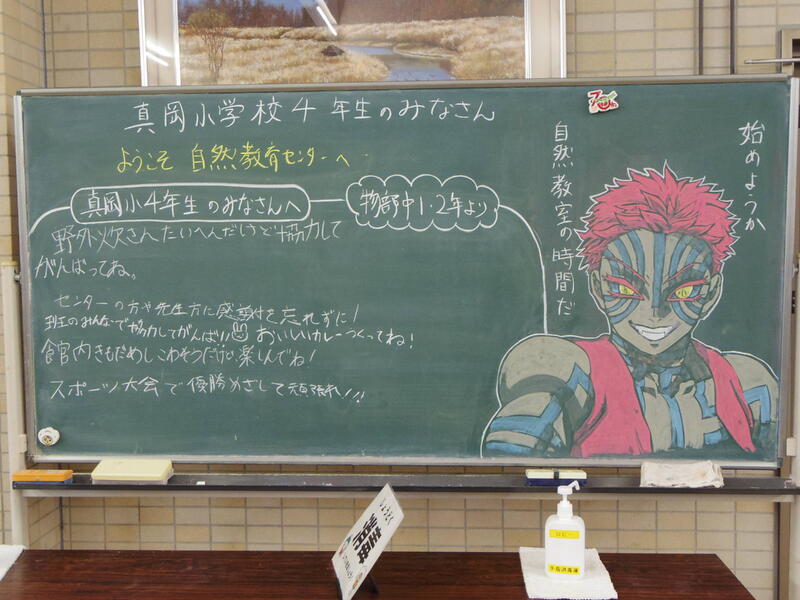 真岡小学校4年生のみなさん
ようこそ 自然教育センターへ
真岡小4年生のみなさんへ
物部中1・2年より
野外炊さんたいへんだけど協力して
がんばってね。
センターの方や先生方に感謝を忘れずに!
班のみんなで協力してがんばり!! おいしいカレーつくってね!
食官内きもだめしこわそうだけど楽しんでね!
スポーツ大会で優勝めざして頑張れ!!!
始めようか
自然教室の時間だ
手指消毒液